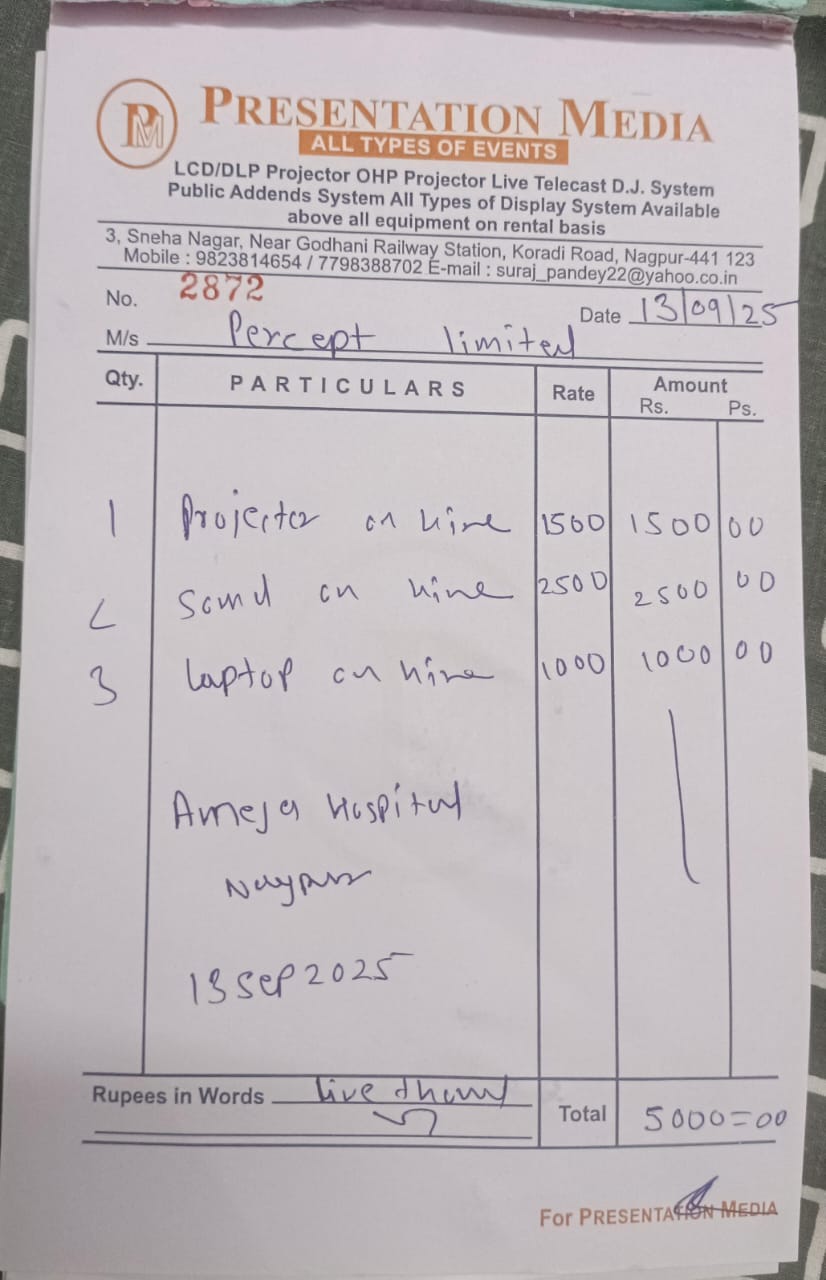 PM
PRESENTATION MEDIA
ALL TYPES OF EVENTS
LCD/DLP Projector OHP Projector Live Telecast D.J. System
Public Addends System All Types of Display System Available
above all equipment on rental basis
3, Sneha Nagar, Near Godhani Railway Station, Koradi Road, Nagpur-441 123
Mobile : 9823814654 / 7798388702 E-mail : suraj_pandey22@yahoo.co.in
No. 2872 Date 13/09/25
M/s Percept limited
Qty. PARTICULARS Rate Amount
Rs. Ps.
1 Projector on hire 1500 1500 00
2 Sound on hire 2500 2500 00
3 Laptop on hire 1000 1000 00
Hospital
Nagpur
13 Sep 2025
Rupees in Words five thous
Total 5000=00
For PRESENTATION MEDIA